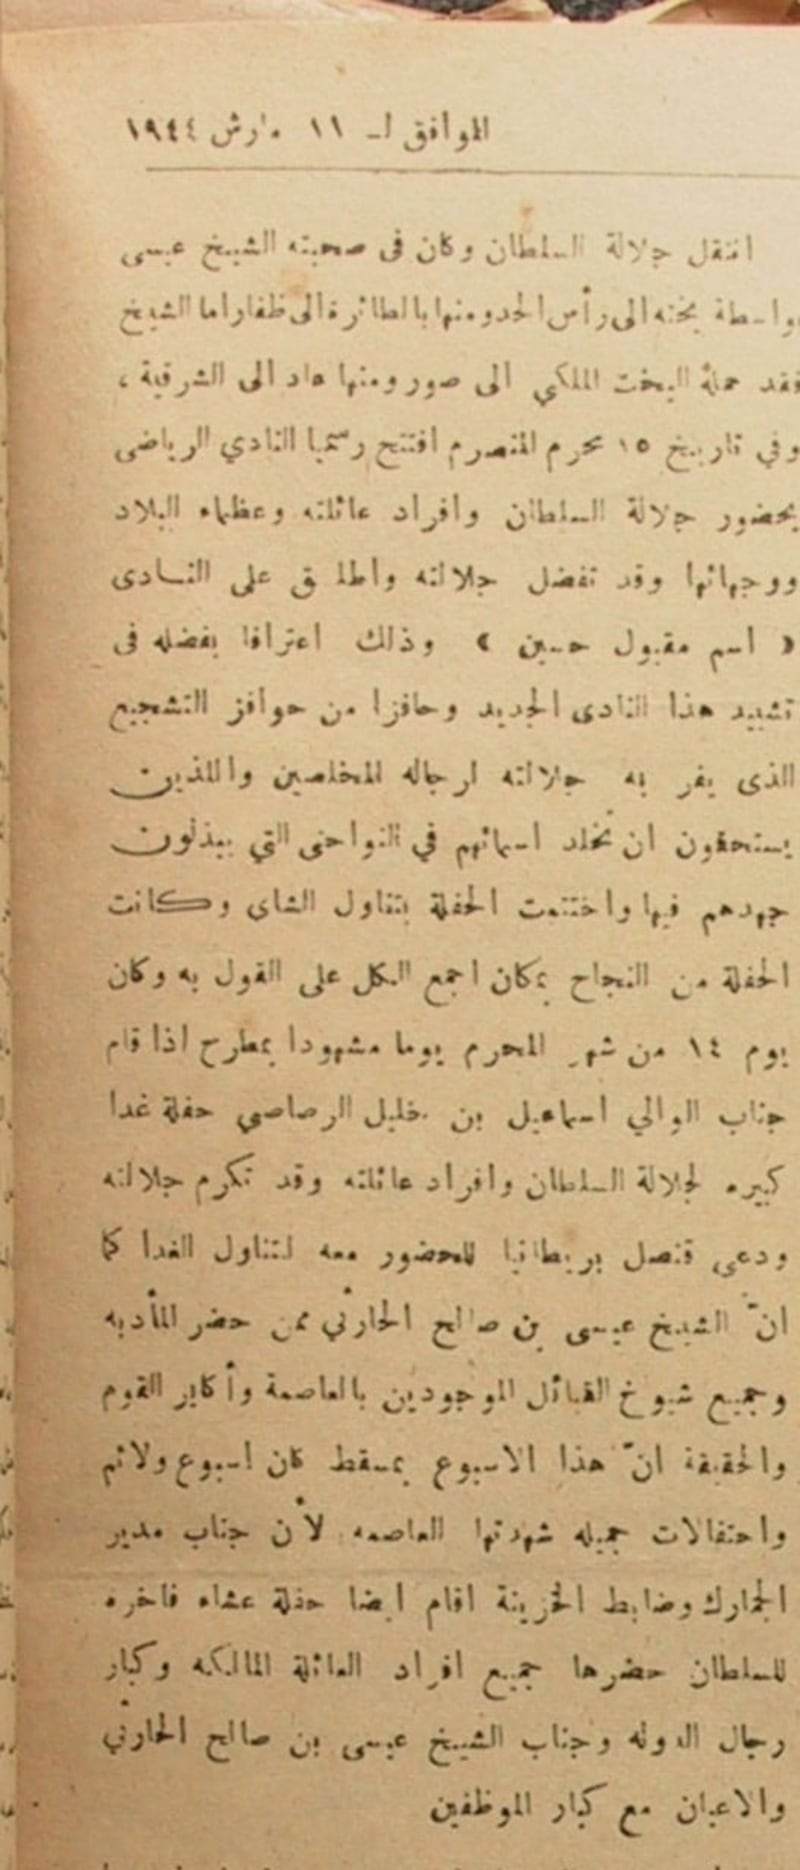 الموافق لـ ١١ مارش ١٩٤٤
انتقل جلالة السلطان وكان فى صحبته الشيخ عيسى
بواسطة يخته الى رأس الحد ومنها بالطائرة الى ظفار اما الشيخ
فقد حمله اليخت الملكي الى صور ومنها عاد الى الشرقية ،
وفي تاريخ ١٥ محرم المنصرم افتتح رسميا النادي الرياضى
بحضور جلالة السلطان وافراد عائلته وعظماء البلاد
ووجهائها وقد تفضل جلالته واطلق على النادى
« اسم مقبول حسين » وذلك اعترافا بفضله فى
تشييد هذا النادى الجديد وحافزا من حوافز التشجيع
الذى يقر به جلالته لرجاله المخلصين واللذين
يستحقون ان تخلد اسمائهم في النواحى التي يبذلون
جهدهم فيها واختتمت الحفلة بتناول الشاى وكانت
الحفلة من النجاح بمكان اجمع الكل على القول به وكان
يوم ١٤ من شهر المحرم يوما مشهودا بمطرح اذا قام
جناب الوالي اسماعيل بن خليل الرصاصي حفلة غدا
كبيره لجلالة السلطان وافراد عائلته وقد تكرم جلالته
ودعى قنصل بريطانيا للحضور معه لتناول الغدا كما
انّ الشيخ عيسى بن صالح الحارثي ممن حضر المأدبه
وجميع شيوخ القبائل الموجودين بالعاصمة وأكابر القوم
والحقيقة انّ هذا الاسبوع بمسقط كان اسبوع ولائم
واحتفالات جميله شهدتها العاصمه لأن جناب مدير
الجمارك وضابط الخزينة اقام ايضا حفلة عشاء فاخره
للسلطان حضرها جميع افراد العائلة المالكه وكبار
رجال الدوله وجناب الشيخ عيسى بن صالح الحارثي
والاعيان مع كبار الموظفين